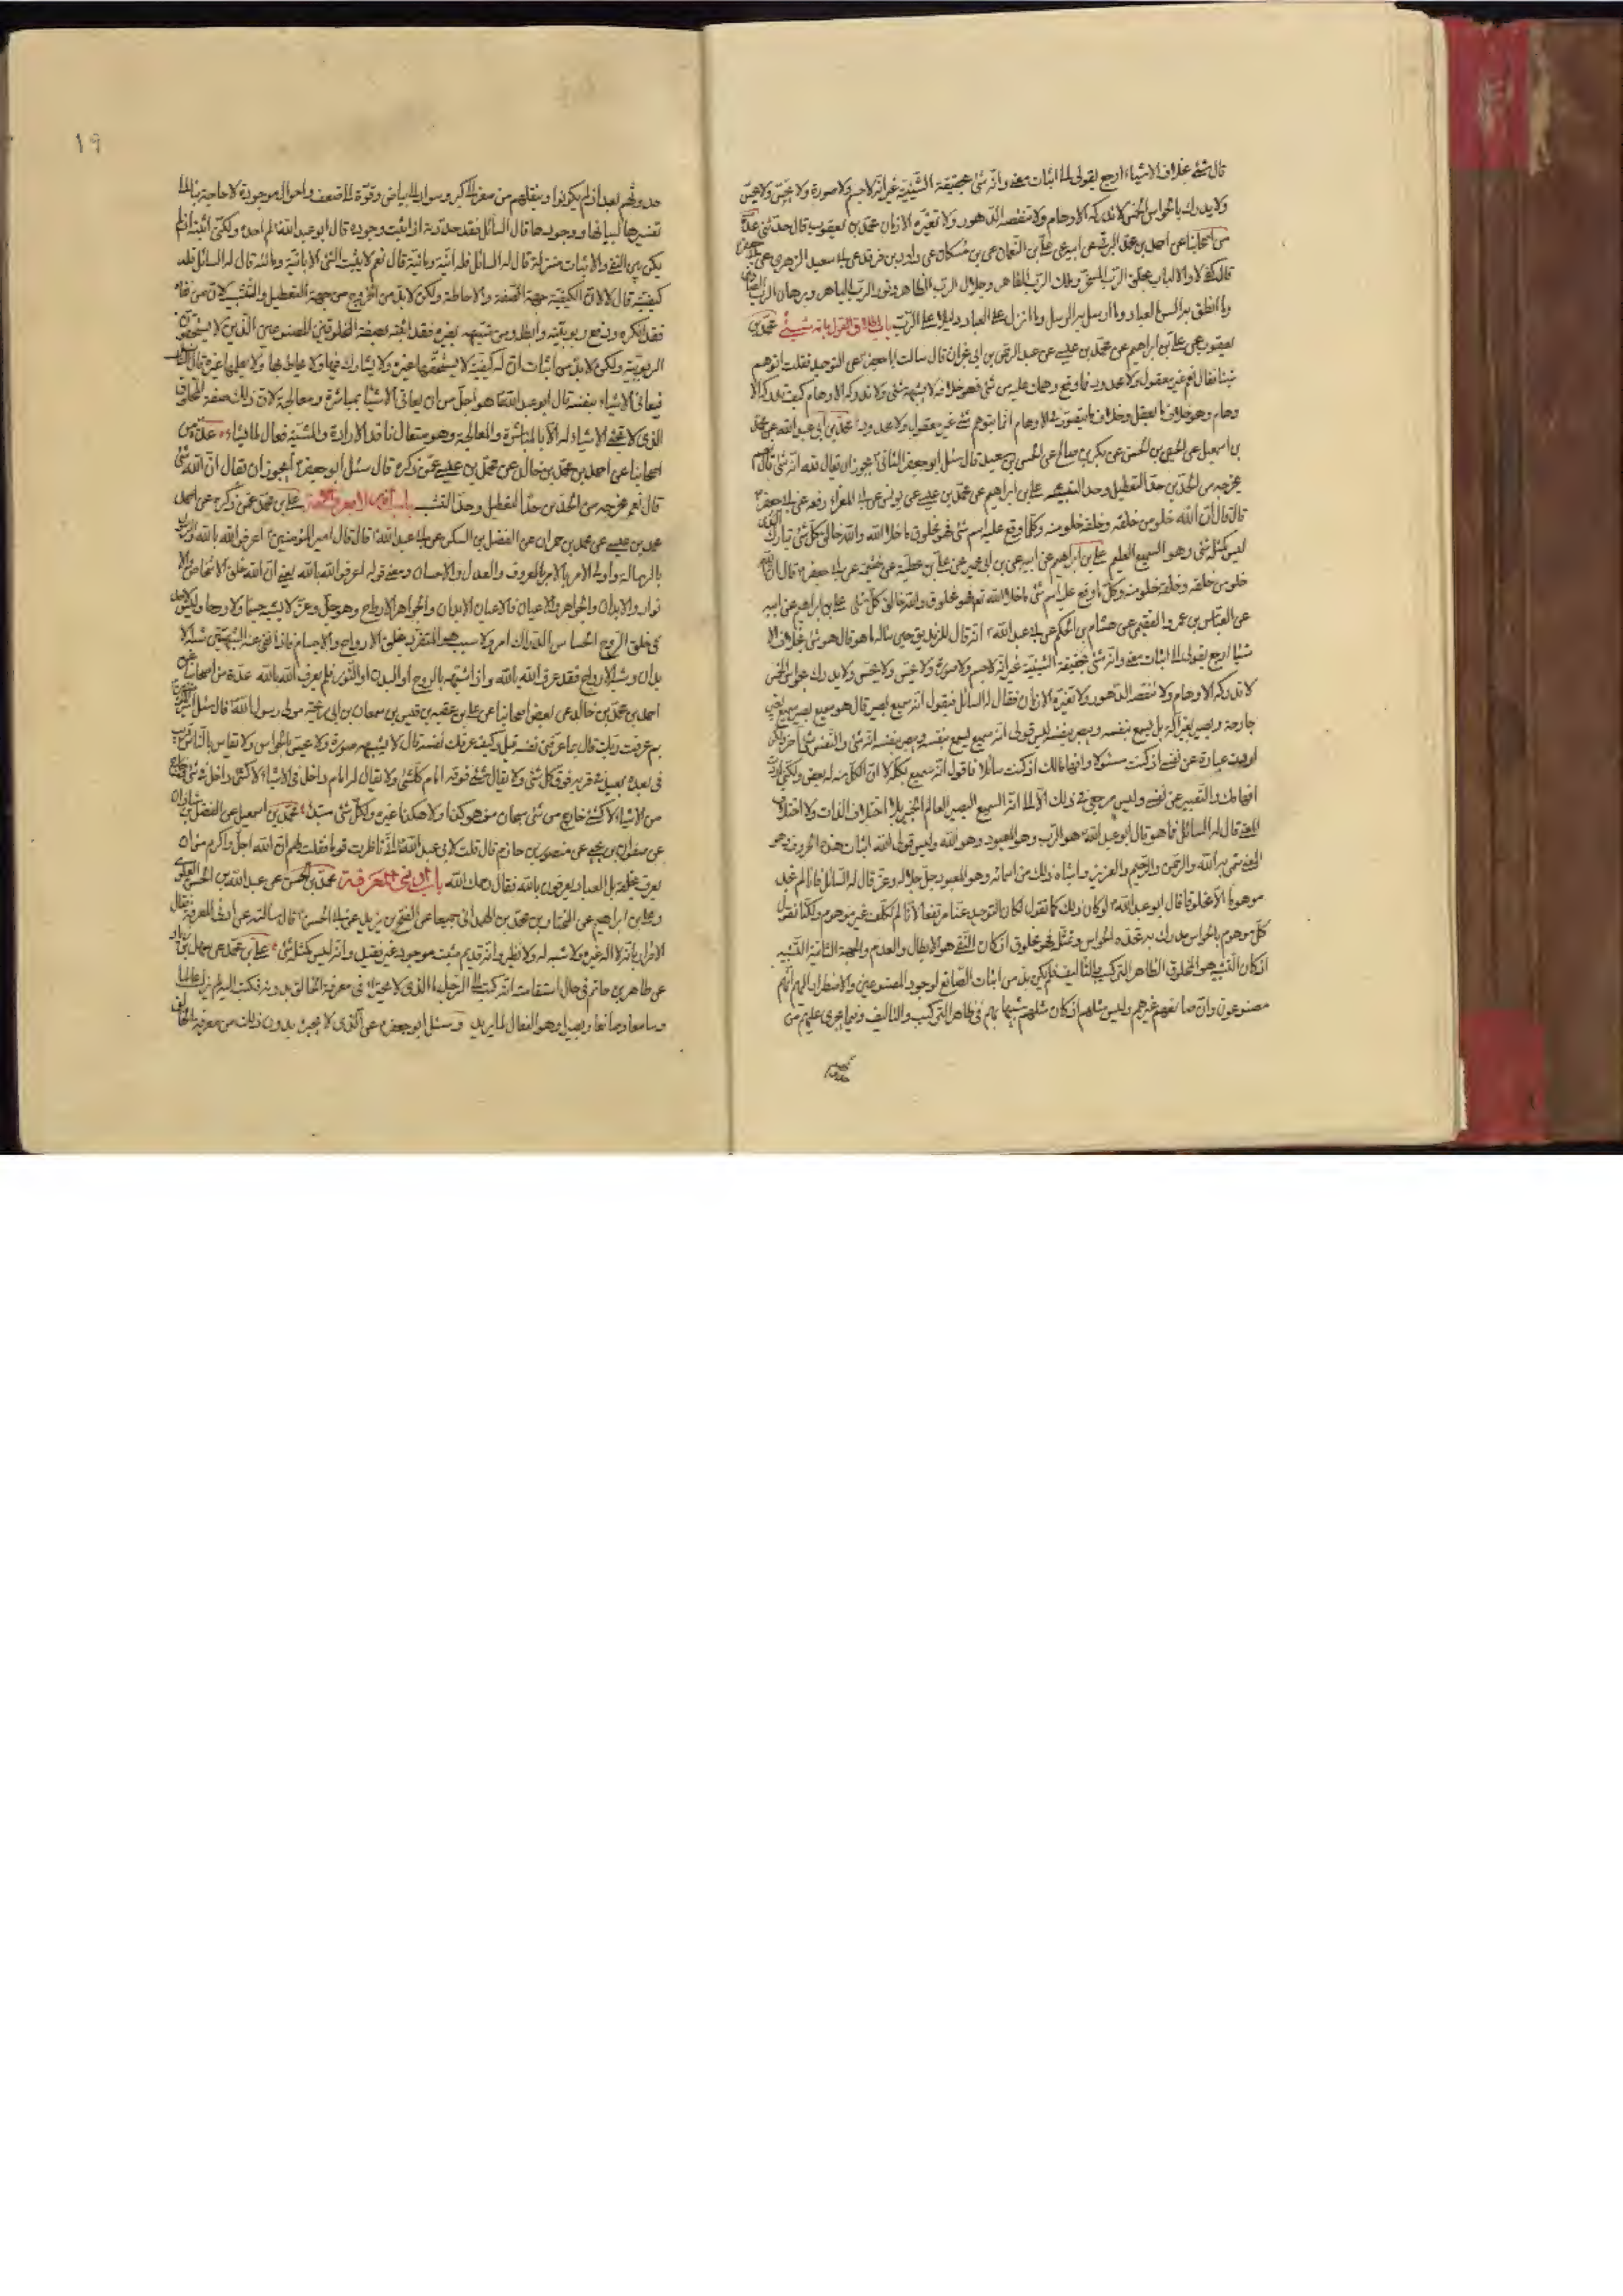 قال شئ بخلاف الاشياء ارجع بقولى الى اثبات معنى وانه شئ بحقيقة الشيئية غير انه لا جسم ولا صورة ولا يحس ولا يجس
ولا يدرك بالحواس الخمس لا تدركه الاوهام ولا تنقصه الدهور ولا تغيره الازمان محمد بن يعقوب قال حدثنى عدة
من اصحابنا عن احمد بن محمد البرقى عن ابيه عن على بن النعمان عن بن مسكان عن داود بن فرقد عن ابى سعيد الزهرى عن ابى جعفر
قال كفى لاولى الالباب بخلق الرب المسخر وملك الرب القاهر وجلال الرب الظاهر ونور الرب الباهر وبرهان الرب الصادق
وما انطق به السن العباد وما ارسل به الرسل وما انزل على العباد دليلا على الرب باب اطلاق القول بانه شئ محمد بن
يعقوب عن على بن ابراهيم عن محمد بن عيسى عن عبد الرحمن بن ابى نجران قال سالت ابا جعفر عن التوحيد فقلت اتوهم
شيئا فقال نعم غير معقول ولا محدود فما وقع وهمك عليه من شئ فهو خلافه لا يشبهه شئ ولا تدركه الاوهام كيف تدركه الا
وهام وهو خلاف ما يعقل وخلاف ما يتصور فى الاوهام انما يتوهم شئ غير معقول ولا محدود محمد بن ابى عبد الله عن محمد
بن اسمعيل عن الحسين بن الحسن عن بكر بن صالح عن الحسن بن سعيد قال سئل ابو جعفر الثانى يجوز ان يقال لله انه شئ قال نعم
يخرجه من الحدين حد التعطيل وحد التشبيه على بن ابراهيم عن محمد بن عيسى عن يونس عن ابى المغرا رفعه عن ابى جعفر
قال قال ان الله خلو من خلقه وخلقه خلو منه وكلما وقع عليه اسم شئ فهو مخلوق ما خلا الله والله خالق كل شئ تبارك الذى
ليس كمثله شئ وهو السميع العليم على بن ابراهيم عن ابيه عن بن ابى عمير عن على بن عطية عن خيثمة عن ابى جعفر قال ان الله
خلو من خلقه وخلقه خلو منه وكلما وقع عليه اسم شئ ما خلا الله تع فهو مخلوق والله خالق كل شئ على بن ابراهيم عن ابيه
عن العباس بن عمرو الفقيمى عن هشام بن الحكم عن ابى عبد الله انه قال للزنديق حين ساله ما هو قال هو شئ بخلاف الا
شياء ارجع بقولى الى اثبات معنى وانه شئ بحقيقة الشيئية غير انه لا جسم ولا صورة ولا يحس ولا يجس ولا يدرك بالحواس الخمس
لا تدركه الاوهام ولا تنقصه الدهور ولا تغيره الازمان فقال له السائل فيقول انه سميع بصير قال هو سميع بصير سميع بغير
جارحة وبصير بغير آلة بل يسمع بنفسه ويبصر بنفسه ليس قولى انه سميع يسمع بنفسه وبصير يبصر بنفسه انه شئ والنفس شئ آخر ولكن
اردت عبارة عن نفسى اذ كنت مسئولا وافهاما لك اذ كنت سائلا فاقول انه سميع بكله لا ان الكل منه له بعض ولكنى اردت
افهامك والتعبير عن نفسى وليس مرجعى فى ذلك الا الى انه السميع البصير العالم الخبير بلا اختلاف الذات ولا اختلاف
المعنى قال له السائل فما هو قال ابو عبد الله هو الرب وهو المعبود وهو الله وليس قولى الله اثبات هذه الحروف
المعنى سمى به الله والرحمن والرحيم والعزيز واشباه ذلك من اسمائه وهو المعبود جل جلاله وعز قال له السائل فانا لم نجد
موهوما الا مخلوقا قال ابو عبد الله لو كان ذلك كما تقول لكان التوحيد عنا مرتفعا لانا لم نكلف غير موهوم ولكنا نقول
كل موهوم بالحواس مدرك به تحده الحواس وتمثله فهو مخلوق اذ كان النفى هو الابطال والعدم والجهة الثانية التشبيه
اذ كان التشبيه هو المخلوق الظاهر التركيب والتاليف فلم يكن بد من اثبات الصانع لوجود المصنوعين والاضطرار اليهم انهم
مصنوعون وان صانعهم غيرهم وليس مثلهم اذ كان مثلهم شبيها بهم فى ظاهر التركيب والتاليف وفيما يجرى عليهم من
١٩
حدوثهم بعد اذ لم يكونوا وتنقلهم من صغر الى كبر وسواد الى بياض وقوة الى ضعف واحوال موجودة لا حاجة بنا الى
تفسيرها لبيانها ووجودها قال السائل فقد حددته اذ اثبت وجوده قال ابو عبد الله لم احده ولكنى اثبته اذ لم
يكن بين النفى والاثبات منزلة قال له السائل فله انية ومائية قال نعم لا يثبت الشئ الا بانية ومائية قال له السائل فله
كيفية قال لا لان الكيفية جهة الصفة والاحاطة ولكن لا بد من الخروج من جهة التعطيل والتشبيه لان من نفاه
فقد انكره ودفع ربوبيته وابطله ومن شبهه بغيره فقد اثبته بصفة المخلوقين المصنوعين الذين لا يستحقون
الربوبية ولكن لا بد من اثبات ان له كيفية لا يستحقها غيره ولا يشارك فيها ولا يحاط بها ولا يعلمها غيره قال السائل
فيعانى الاشياء بنفسه قال ابو عبد الله هو اجل من ان يعانى الاشياء بمباشرة ومعالجة لان ذلك صفة المخلوق
الذى لا تجئ الاشياء له الا بالمباشرة والمعالجة وهو متعال نافذ الارادة والمشية فعال لما يشاء عدة من
اصحابنا عن احمد بن محمد بن خالد عن محمد بن عيسى عمن ذكره قال سئل ابو جعفر ايجوز ان يقال ان الله شئ
قال نعم يخرجه من الحدين حد التعطيل وحد التشبيه باب انه لا يعرف الا به على بن محمد عمن ذكره عن احمد
محمد بن عيسى عن محمد بن حمران عن الفضل بن السكن عن ابى عبد الله قال قال امير المؤمنين اعرفوا الله بالله والرسول
بالرسالة واولى الامر بالامر بالمعروف والعدل والاحسان ومعنى قوله اعرفوا الله بالله يعنى ان الله خلق الاشخاص والا
نوار والابدان والجواهر والاعيان فالاعيان الابدان والجواهر الارواح وهو جل وعز لا يشبه جسما ولا روحا وليس لاحد
فى خلق الروح الحساس الدراك امر ولا سبب هو المتفرد بخلق الارواح والاجسام فاذا نفى عنه الشبهين شبه الا
بدان وشبه الارواح فقد عرف الله بالله واذا شبهه بالروح او البدن او النور فلم يعرف الله بالله عدة من اصحابنا عن
احمد بن محمد بن خالد عن بعض اصحابنا عن على بن عقبة بن قيس بن سمعان بن ابى ربيحة مولى رسول الله قال سئل امير المؤمنين
بم عرفت ربك قال بما عرفنى نفسه قيل وكيف عرفك نفسه قال لا يشبهه صورة ولا يحس بالحواس ولا يقاس بالناس قريب
فى بعده بعيد فى قربه فوق كل شئ ولا يقال شئ فوقه امام كل شئ ولا يقال له امام داخل فى الاشياء لا كشئ داخل فى شئ وخارج
من الاشياء لا كشئ خارج من شئ سبحان من هو هكذا ولا هكذا غيره ولكل شئ مبتدا محمد بن اسمعيل عن الفضل بن شاذان
عن صفوان بن يحيى عن منصور بن حازم قال قلت لابى عبد الله انى ناظرت قوما فقلت لهم ان الله اجل واكرم من ان
يعرف بخلقه بل العباد يعرفون بالله فقال رحمك الله باب ادنى المعرفة محمد بن الحسن عن عبد الله بن الحسن العلوى
وعلى بن ابراهيم عن المختار بن محمد بن المختار الهمدانى جميعا عن الفتح بن يزيد عن ابى الحسن قال سالته عن ادنى المعرفة فقال
الاقرار بانه لا اله غيره ولا شبه له ولا نظير وانه قديم مثبت موجود غير فقيد وانه ليس كمثله شئ على بن محمد عن سهل بن زياد
عن طاهر بن حاتم فى حال استقامته انه كتب الى الرجل ما الذى لا يجتزأ فى معرفة الخالق بدونه فكتب اليه لم يزل عالما
وسامعا وبصيرا وهو الفعال لما يريد وسئل ابو جعفر عن الذى لا يجتزئ بدون ذلك من معرفة الخالق